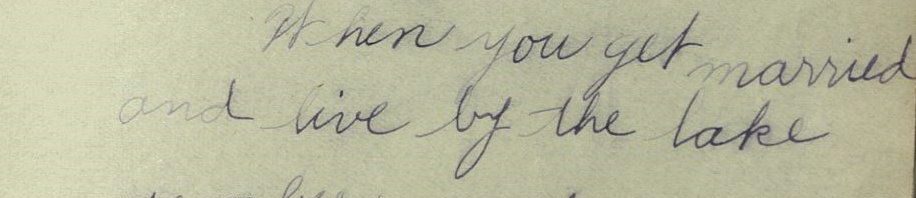 When you get married
and live by the lake